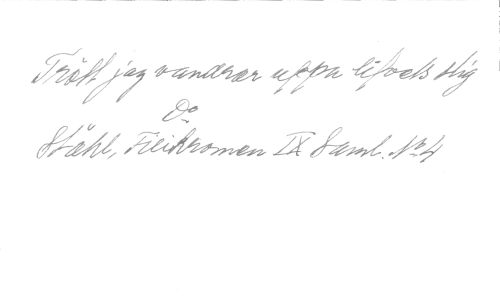 Trött jag vandrar uppå lifvets stig
Do
Ståhl, Fikromen IX Saml. No 4